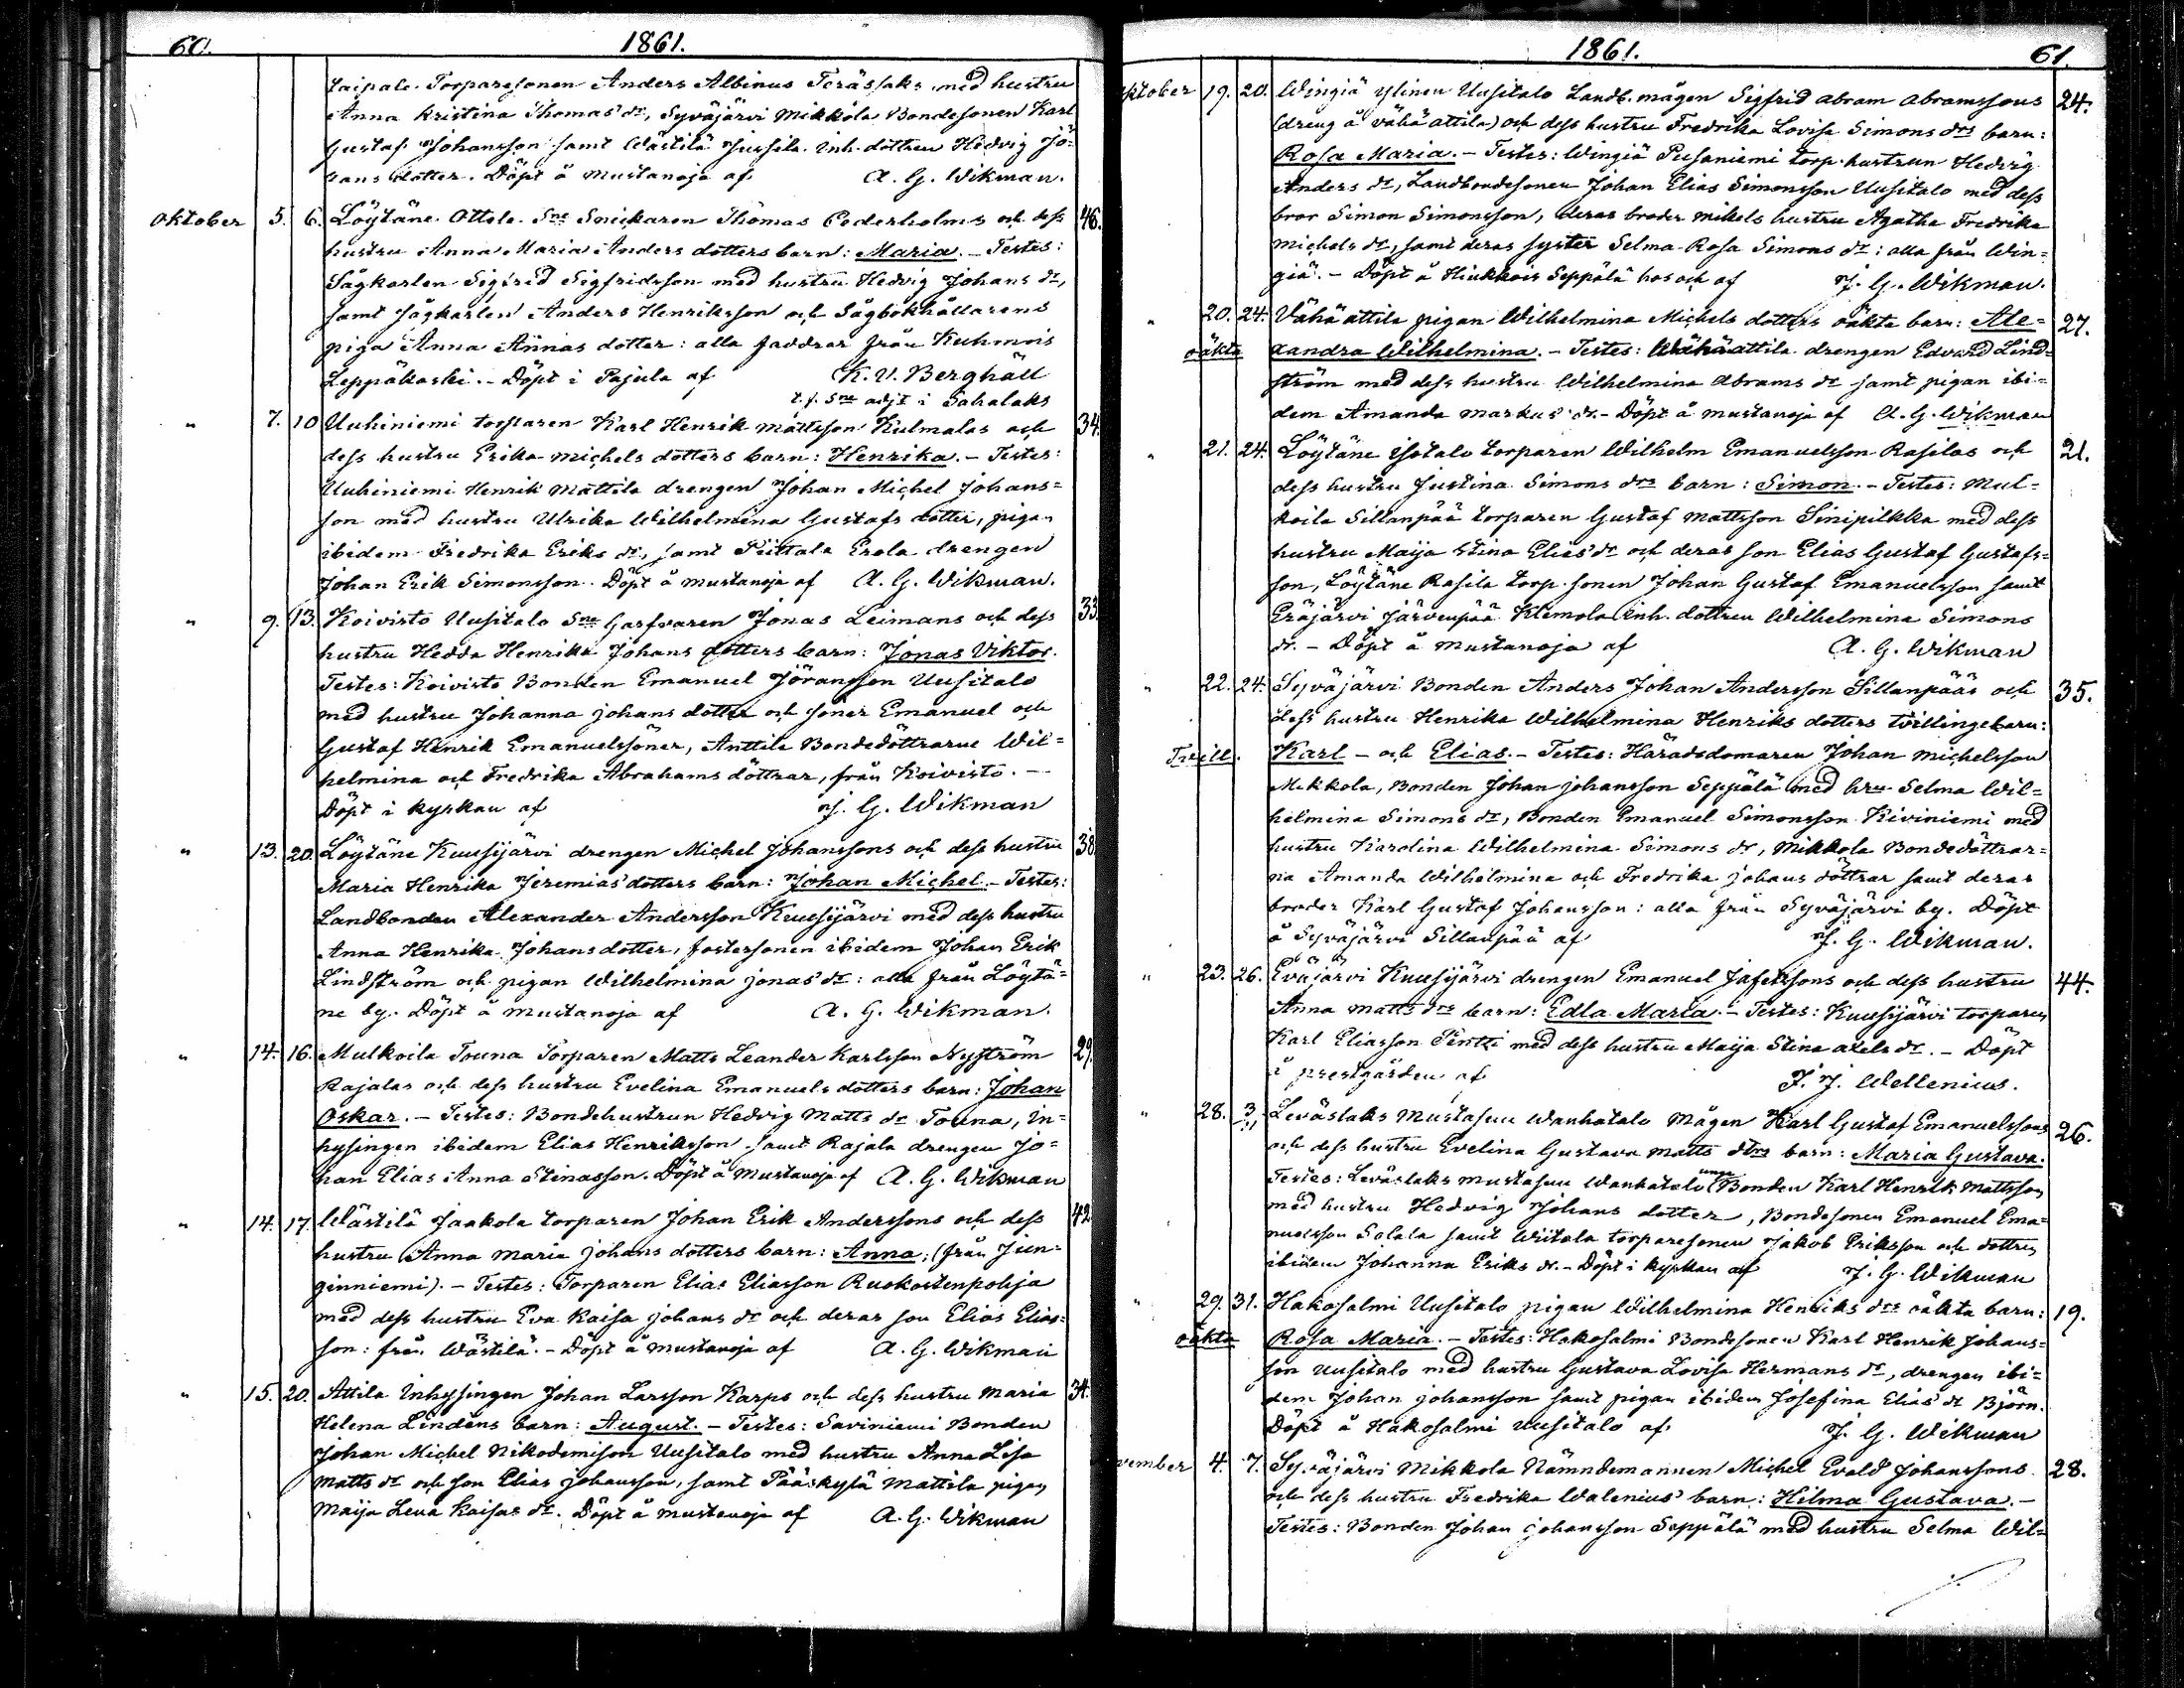 60. 1861.
taipale Torparesonen Anders Albinus Teräslaks med hustru
Anna Kristina Thomas dr, Syväjärvi Mikkola Bondesonen Karl
Gustaf Johansson samt Wästilä Jussila inh. dottren Hedvig Jo=
hans dotter. Döpt å Mustanoja af A. G. Wikman.
Oktober 5. 6. Löytäne Ottole Sne Snickaren Thomas Cederholms och dess 46.
hustru Anna Maria Anders dotters barn: Maria. - Testes:
Sågkarlen Sigfrid Sigfridsson med hustru Hedvig Johans dr,
samt sågkarlen Anders Henriksson och Sågbokhållarens
piga Anna Annas dotter: alla faddrar från Kuhmois
Leppäkoski. - Döpt i Pajula af K. U. Berghäll
t. f. Sne adjt i Sahalaks
" 7. 10 Uuhiniemi torparen Karl Henrik Mattsson Kulmalas och 34.
dess hustru Erika Michels dotters barn: Henrika. - Testes:
Uuhiniemi Henrik Mattila drengen Johan Michel Johans=
son med hustru Ulrika Wilhelmina Gustafs dotter, pigan
ibidem Fredrika Eriks dr, samt Puttala Erola drengen
Johan Erik Simonsson. Döpt å Mustanoja af A. G. Wikman.
" 9. 13. Koivisto Uusitalo Sne Garfvaren Jonas Leimans och dess 33.
hustru Hedda Henrika Johans dotters barn: Jonas Viktor.
Testes: Koivisto Bonden Emanuel Jöransson Uusitalo
med hustru Johanna Johans dotter och söner Emanuel och
Gustaf Henrik Emanuelssöner, Anttila Bondedöttrarne Wil=
helmina och Fredrika Abrahams döttrar, från Koivisto. -
Döpt i kyrkan af J. G. Wikman
" 13. 20. Löytäne Kuusijärvi drengen Michel Johanssons och dess hustru 38.
Maria Henrika Jeremias dotters barn: Johan Michel. - Testes:
Landbonden Alexander Andersson Kuusijärvi med dess hustru
Anna Henrika Johans dotter, fostersonen ibidem Johan Erik
Lindström och pigan Wilhelmina Jonas dr: alla från Löytä=
ne by. Döpt å Mustanoja af A. G. Wikman.
" 14. 16. Mulkoila Touna Torparen Matts Leander Karlsson Nyström 29.
Rajalas och dess hustru Evelina Emanuels dotters barn: Johan
Oskar. - Testes: Bondehustrun Hedvig Matts dr Touna, in=
hysingen ibidem Elias Henriksson samt Rajala drengen Jo=
han Elias Anna Stinasson. Döpt å Mustanoja af A. G. Wikman
" 14. 17. Wästilä Jaakola torparen Johan Erik Anderssons och dess 42.
hustru Anna Maria Johans dotters barn: Anna; (från Jun=
ginniemi). - Testes: Torparen Elias Eliasson Ruokostenpohja
med dess hustru Eva Kaisa Johans dr och deras son Elias Elias=
son: från Wästilä. - Döpt å Mustanoja af A. G. Wikman
" 15. 20. Attila Inhysingen Johan Larsson Karps och dess hustru Maria 34.
Helena Lindéns barn: August. - Testes: Saviniemi Bonden
Johan Michel Nikodemisson Uusitalo med hustru Anna Lisa
Matts dr och son Elias Johansson, samt Pääskylä Mattila pigan
Maija Lena Kaisas dr. Döpt å Mustanoja af A. G. Wikman
1861. 61.
ktober 19. 20. Wingiä Ylinen Uusitalo Landb. mågen Sigfrid Abram Abramssons 24.
(dreng å Vähäattila) och dess hustru Fredrika Lovisa Simons drs barn:
Rosa Maria. - Testes: Wingiä Pusaniemi torp. hustrun Hedvig
Anders dr, Landbondesonen Johan Elias Simonsson Uusitalo med dess
bror Simon Simonsson, deras broder Mikels hustru Agatha Fredrika
Michels dr, samt deras syster Selma Rosa Simons dr: alla från Win=
giä. - Döpt å Hiukkois Seppälä hos och af J. G. Wikman.
" 20. 24. Vähäattila pigan Wilhelmina Michels dotters oäkta barn: Ale= 27.
oäkta xandra Wilhelmina. - Testes: Wähäattila drengen Edvard Lind=
ström med dess hustru Wilhelmina Abrams dr samt pigan ibi=
dem Amanda Markus dr. - Döpt å Mustanoja af A. G. Wikman
" 21. 24. Löytäne Isotalo torparen Wilhelm Emanuelsson Rasilas och 21.
dess hustru Justina Simons drs barn: Simon. - Testes: Mul=
koila Sillanpää torparen Gustaf Mattsson Sinipilkka med dess
hustru Maija Stina Elias dr och deras son Elias Gustaf Gustafs=
son, Löytäne Rasila torp. sonen Johan Gustaf Emanuelsson samt
Eräjärvi Järvenpää Klemola inh. dottren Wilhelmina Simons
dr. - Döpt å Mustanoja af A. G. Wikman
" 22. 24. Syväjärvi Bonden Anders Johan Andersson Sillanpääs och 35.
dess hustru Henrika Wilhelmina Henriks dotters tvillingebarn:
Tvill. Karl - och Elias. - Testes: Häradsdomaren Johan Michelsson
Mikkola, Bonden Johan Johansson Seppälä med hru Selma Wil=
helmina Simons dr, Bonden Emanuel Simonsson Kiviniemi med
hustru Karolina Wilhelmina Simons dr, Mikkola Bondedöttrar=
na Amanda Wilhelmina och Fredrika Johans döttrar samt deras
broder Karl Gustaf Johansson: alla från Syväjärvi by. Döpt
å Syväjärvi Sillanpää af J. G. Wikman.
" 23. 26. Eväjärvi Kuusijärvi drengen Emanuel Jafetssons och dess hustru 44.
Anna Matts drs barn: Edla Maria. - Testes: Kuusijärvi torparen
Karl Eliasson Pentti med dess hustru Maija Stina Axels dr. - Döpt
i prestgården af J. J. Wellenius.
" 28. 3. Leväslaks Mustasuu Wanhatalo Mågen Karl Gustaf Emanuelssons 26.
och dess hustru Evelina Gustava Matts dtrs barn: Maria Gustava.
Testes: Leväslaks Mustasuu Wanhatalo unge Bonden Karl Henrik Mattsson
med hustru Hedvig Johans dotter, Bondesonen Emanuel Ema=
nuelsson Solala samt Writala torparesonen Jakob Eriksson och dottren
ibidem Johanna Eriks dr. - Döpt i kyrkan af J. G. Wikman
" 29. 31. Hakosalmi Uusitalo pigan Wilhelmina Henriks drs oäkta barn: 19.
oäkta Rosa Maria. - Testes: Hakosalmi Bondesonen Karl Henrik Johans=
son Uusitalo med hustru Gustava Lovisa Hermans dr, drengen ibi=
dem Johan Johansson samt pigan ibidem Josefina Elias dr Björn.
Döpt å Hakosalmi Uusitalo af J. G. Wikman
vember 4. 7. Syväjärvi Mikkola Nämndemannen Michel Evald Johanssons 28.
och dess hustru Fredrika Walenius' barn: Hilma Gustava. -
Testes: Bonden Johan Johansson Seppälä med hustru Selma Wil=